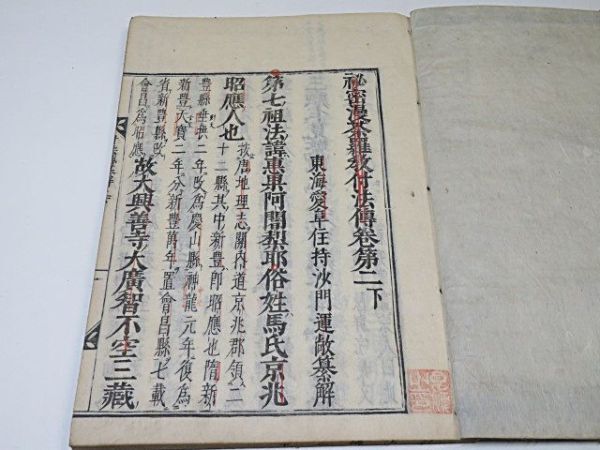 祕密漫荼羅教付法傳卷第二下
東海愛早住持沙門運敞纂解
第七祖法諱惠果阿闍梨耶俗姓馬氏京兆
昭應人也
按唐地理志關內道京兆郡領二
十二縣其中新豐即昭應也隋新
豐縣垂拱二年改為慶山縣神龍元年復為
新豐天寶二年分新豐萬年置會昌縣七載
省新豐縣改
會昌為昭應
故大興善寺大廣智不空三藏